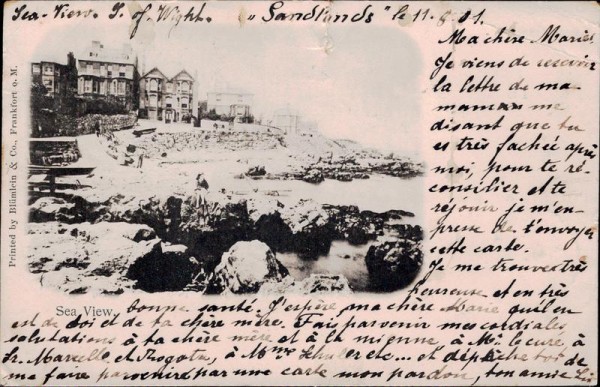 Sea-View. I. of Wight. „Sandlands" le 11.8.01.
Ma chère Marie,
Je viens de recevoir
la lettre de ma
maman me
disant que tu
es très fachée après
moi, pour te ré-
consilier et te
réjouir je m'em-
presse de t'envoyer
cette carte.
Je me trouve très
heureuse et en très
bonne santé. J'espère, ma chère Marie qu'il en
est de toi et de ta chère mère. Fais parvenir mes cordiales
salutations à ta chère mère et à la mienne, à Mr. le curé, à
Sr. Marcelle et à Mme Schuler etc... et dépêche toi de
me faire parvenir par une carte mon pardon, ton amie
Sea View.
Printed by Blümlein & Co., Frankfort o. M.